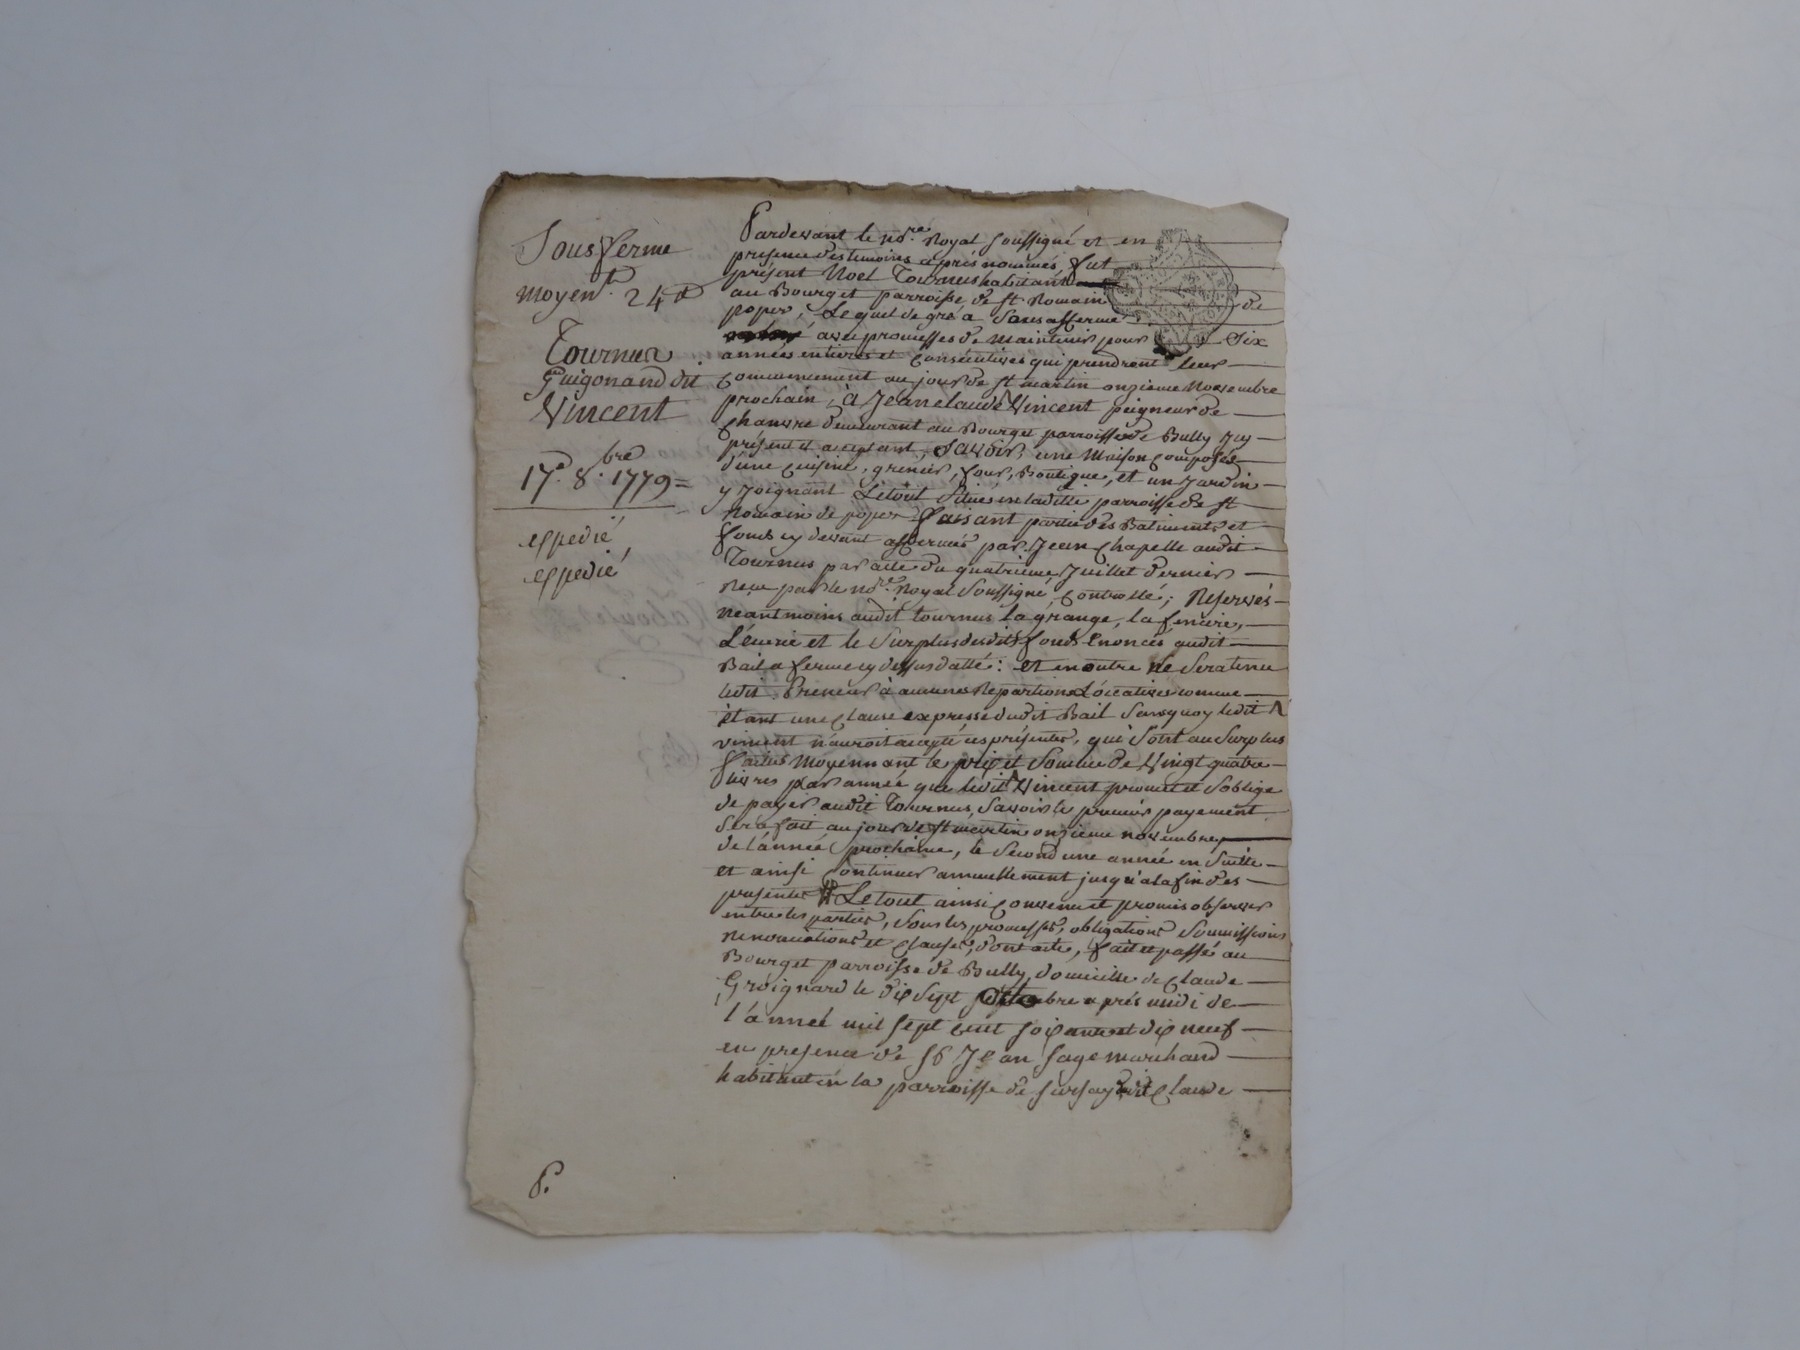 Sousferme
moyent. 24 #
Tournus
Guigonand dit
Vincent
17e. 8.bre 1779 =
expedié
expedié
Pardevant le no.re Royal soussigné et en
presence des temoins après nommés, fut
présent Noel Tournus habitant
au Bourg et parroisse de st Romain de
popez, Lequel de gré a sousafferme
avec promesses de maintenir pour Six
années entieres et consécutives qui prendront leur
commencement au jour de st martin onzieme Novembre
prochain, à Jeanclaude Vincent peigneur de
chanvre demeurant au Bourg et parroisse de Bully Icy
présent et aceptant, Savoir une Maison composée
d'une cuisine, grenier, four, Boutique, et un Jardin
y Joignant Letout Situés en ladite parroisse de st
Romain de popez faisant partie des Batiments et
fonds cy devant affermés par Jean Chapelle audit
Tournus par acte du quatrieme Juillet Dernier
Reçu par le no.re Royal Soussigné, Controllé; Reservés
neantmoins audit tournus la grange, la feniere,
L'écurie et le Surplus desdits fonds Enoncés audit
Bail a ferme cy dessus datté: et en outre Ne Sera tenu
ledit Preneur à aucunes Repartions Locatives comme
étant une clause expresse dudit Bail Sans quoy ledit
vincent n'auroit accepté ces présentes, qui Sont au Surplus
faites Moyennant le prix et Somme de Vingt quatre
livres par année que ledit Vincent promet et S'oblige
de payer audit Tournus, Savoir le premier payement
Sera fait au jour de st martin onzieme novembre
de l'année prochaine, le Second une année en Suitte
et ainsi continuer annuellement jusqu'a la fin des
presentes Le tout ainsi convenu et promis observer
entre les parties, Sous les promesses, obligations Soumissions
renonciations et clauses, dont acte, fait et passé au
Bourg et parroisse de Bully, domicille de Claude
Groignard le dix Sept octobre après midi de
l'année mil sept cent soixante et dix neuf
en presence de Sr Jean Sage marchand
habitant en la parroisse de et Claude
P.